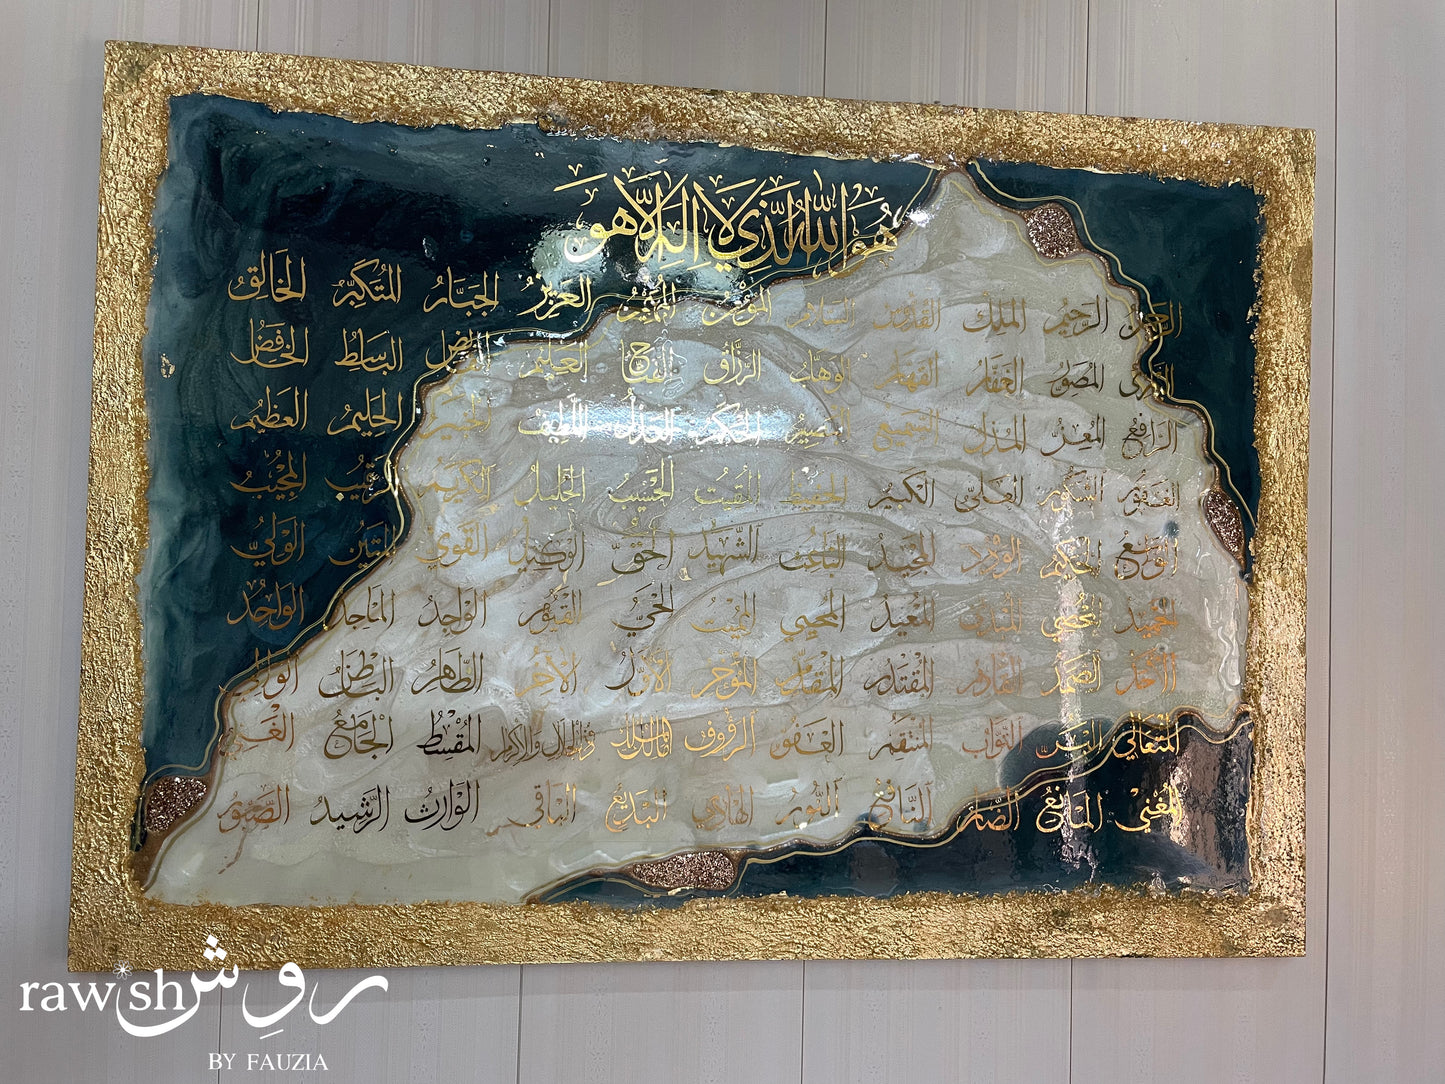 هُوَ اللهُ الَّذِي لَا إِلَهَ إِلَّا هُوَ
الرحمن الرحيم الملك القدوس السلام المؤمن المهيمن العزيز الجبار المتكبر الخالق
البارئ المصور الغفار القهار الوهاب الرزاق الفتاح العليم القابض الباسط الخافض
الرافع المعز المذل السميع البصير الحكم العدل اللطيف الخبير الحليم العظيم
الغفور الشكور العلي الكبير الحفيظ المقيت الحسيب الجليل الكريم الرقيب المجيب
الواسع الحكيم الودود المجيد الباعث الشهيد الحق الوكيل القوي المتين الولي
الحميد المحصي المبدئ المعيد المحيي المميت الحي القيوم الواجد الماجد الواحد
الأحد الصمد القادر المقتدر المقدم المؤخر الأول الآخر الظاهر الباطن الوالي
المتعالي البر التواب المنتقم العفو الرؤوف مالك الملك ذوالجلال والاكرام المقسط الجامع الغني
المغني المانع الضار النافع النور الهادي البديع الباقي الوارث الرشيد الصبور
rawish روش
BY FAUZIA